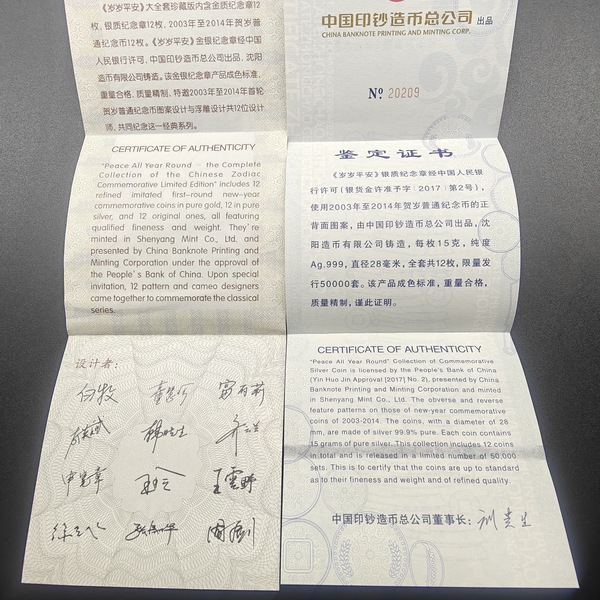 《岁岁平安》大全套珍藏版内含金质纪念章12
枚、银质纪念章12枚、2003年至2014年贺岁普
通纪念币12枚。《岁岁平安》金银纪念章经中国
人民银行许可，中国印钞造币总公司出品，沈阳
造币有限公司铸造。该金银纪念章产品成色标准，
重量合格，质量精制，特邀2003年至2014年首轮
贺岁普通纪念币图案设计与浮雕设计共12位设计
师，共同纪念这一经典系列。
CERTIFICATE OF AUTHENTICITY
"Peace All Year Round — the Complete
Collection of the Chinese Zodiac
Commemorative Limited Edition" includes 12
refined imitated first-round new-year
commemorative coins in pure gold, 12 in pure
silver, and 12 original ones, all featuring
qualified fineness and weight. They're
minted in Shenyang Mint Co., Ltd. and
presented by China Banknote Printing and
Minting Corporation under the approval of
the People's Bank of China. Upon special
invitation, 12 pattern and cameo designers
came together to commemorate the classical
series.
设计者：
中国印钞造币总公司 出品
CHINA BANKNOTE PRINTING AND MINTING CORP.
Nº 20209
鉴定证书
《岁岁平安》银质纪念章经中国人民银
行许可（银货金许准予字〔2017〕第2号），
使用2003年至2014年贺岁普通纪念币的正
背面图案，由中国印钞造币总公司出品，沈
阳造币有限公司铸造，每枚15克，纯度
Ag.999，直径28毫米，全套共12枚，限量发
行50000套。该产品成色标准，重量合格，
质量精制，谨此证明。
CERTIFICATE OF AUTHENTICITY
"Peace All Year Round" Collection of Commemorative
Silver Coin is licensed by the People's Bank of China
(Yin Huo Jin Approval [2017] No. 2), presented by China
Banknote Printing and Minting Corporation and minted
in Shenyang Mint Co., Ltd. The obverse and reverse
feature patterns on those of new-year commemorative
coins of 2003-2014. The coins, with a diameter of 28
mm, are made of silver 99.9% pure. Each coin contains
15 grams of pure silver. This collection includes 12 coins
in total and is released in a limited number of 50,000
sets. This is to certify that the coins are up to standard
as to their fineness and weight and of refined quality.
中国印钞造币总公司董事长：